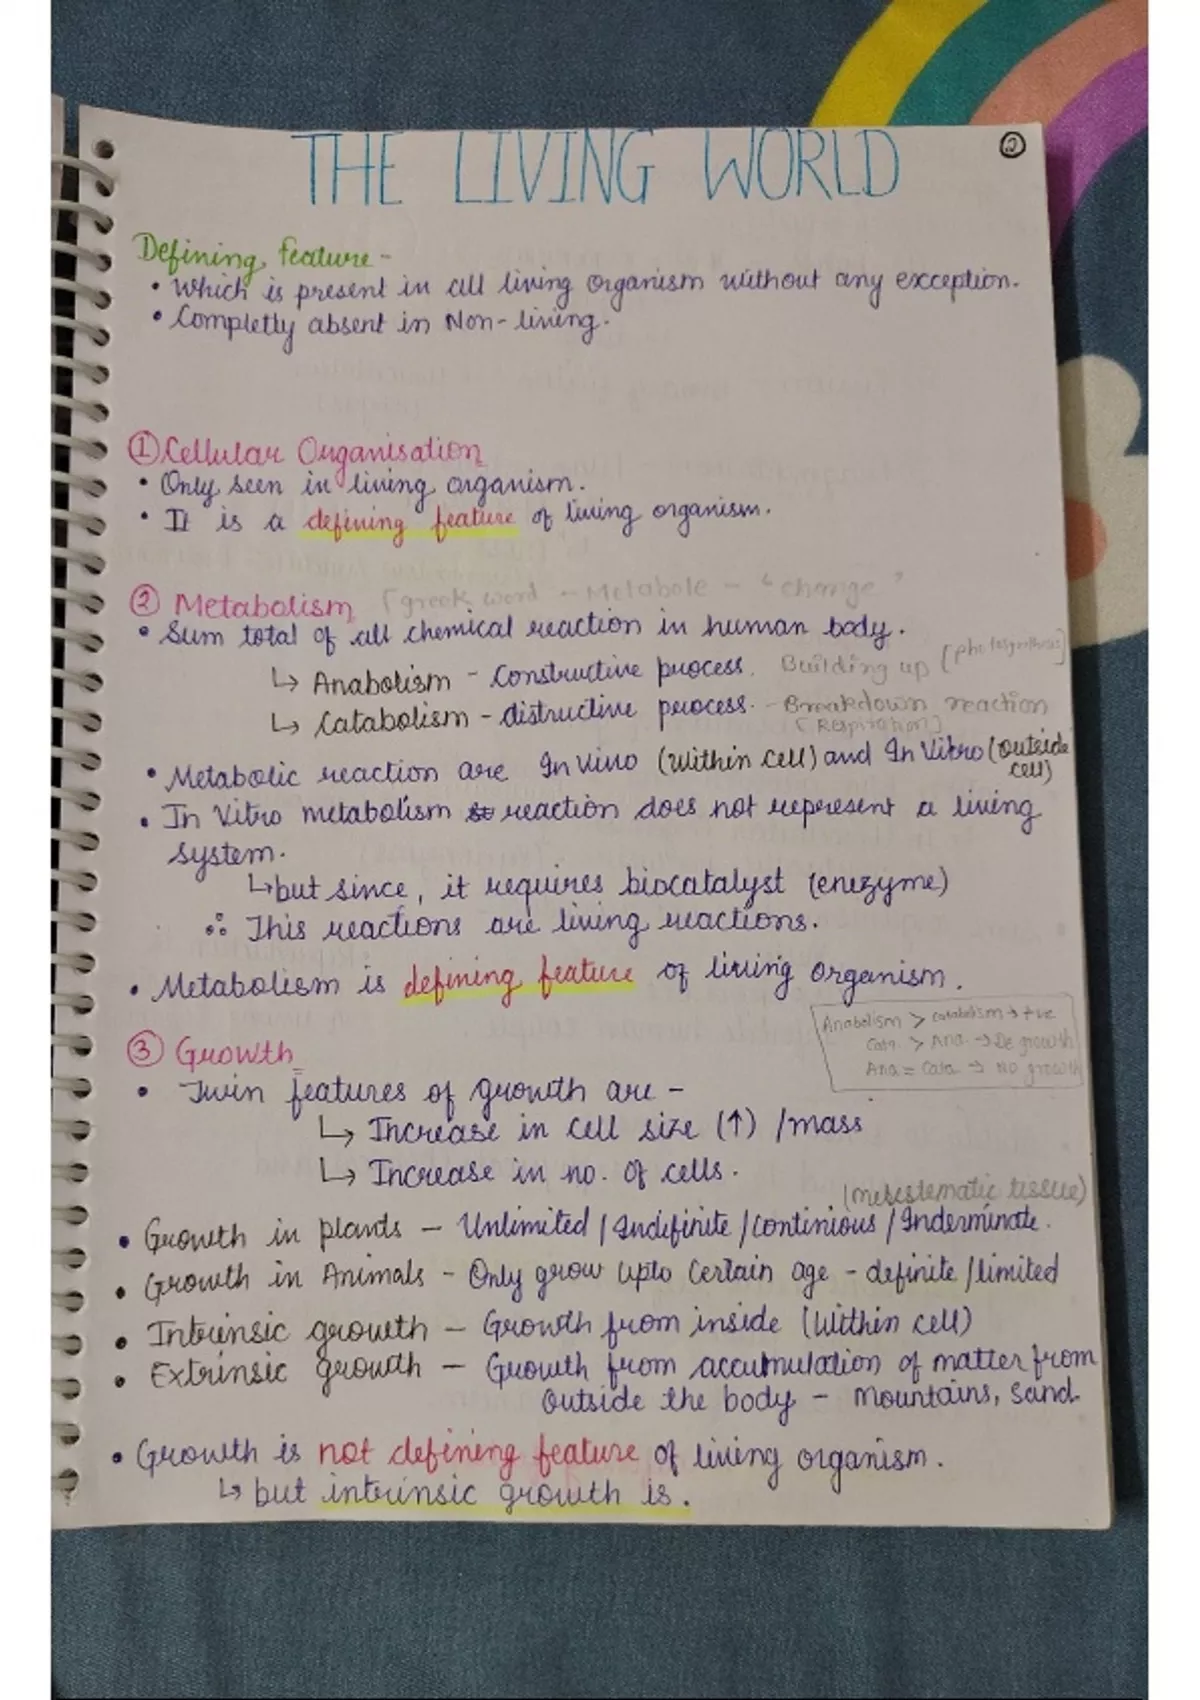 THE LIVING WORLD
2
Defining feature -
• Which is present in all living organism without any exception.
• Completly absent in Non-living.
① Cellular Organisation
• Only seen in living organism.
• It is a defining feature of living organism.
② Metabolism [greek word - Metabole - "change"
• Sum total of all chemical reaction in human body.
↳ Anabolism - Constructive process. Building up [photosynthesis]
↳ Catabolism - distructive process. - Breakdown reaction
[Respiration]
• Metabolic reaction are In vivo (within cell) and In Vitro (outside
cell)
• In Vitro metabolism reaction does not represent a living
system.
↳ but since, it requires biocatalyst (enezyme)
∴ This reactions are living reactions.
• Metabolism is defining feature of living organism.
Anabolism > catabolism → +ve
Cata. > Ana → De growth
Ana = Cata → No growth
③ Growth
• Twin features of growth are -
↳ Increase in cell size (↑) /mass
↳ Increase in no. of cells.
(meristematic tissue)
• Growth in plants - Unlimited / Indefinite / continious / Inderminate.
• Growth in Animals - Only grow upto certain age - definite / limited
• Intrinsic growth - Growth from inside (Within cell)
• Extrinsic growth - Growth from accumulation of matter from
outside the body - Mountains, Sand
• Growth is not defining feature of living organism.
↳ but intrinsic growth is.